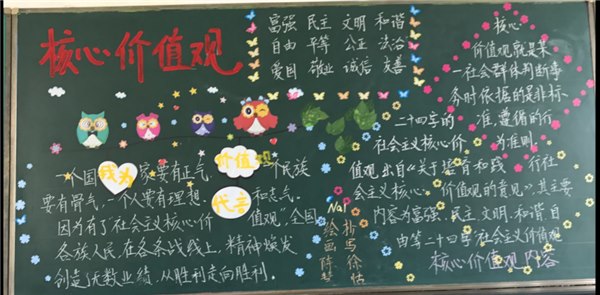 核心价值观
富强 民主 文明 和谐
自由 平等 公正 法治
爱国 敬业 诚信 友善
核心
价值观就是某
一社会群体判断事
务时依据的是非标
准,遵循的行
为准则
一个国家要有正气,一个民族
要有骨气,一个人要有理想和志气。
因为有了“社会主义核心价值观”,全国
各族人民,在各条战线上,精神焕发
创造了无数业绩,从胜利走向胜利。
成为
价值
代主
二十四字的
社会主义核心价
值观出自《关于培育和践行社
会主义核心价值观的意见》,其主要
内容为富强、民主、文明、和谐、自
由等二十四字社会主义价值观
核心价值观内容
No1
绘画
抄写